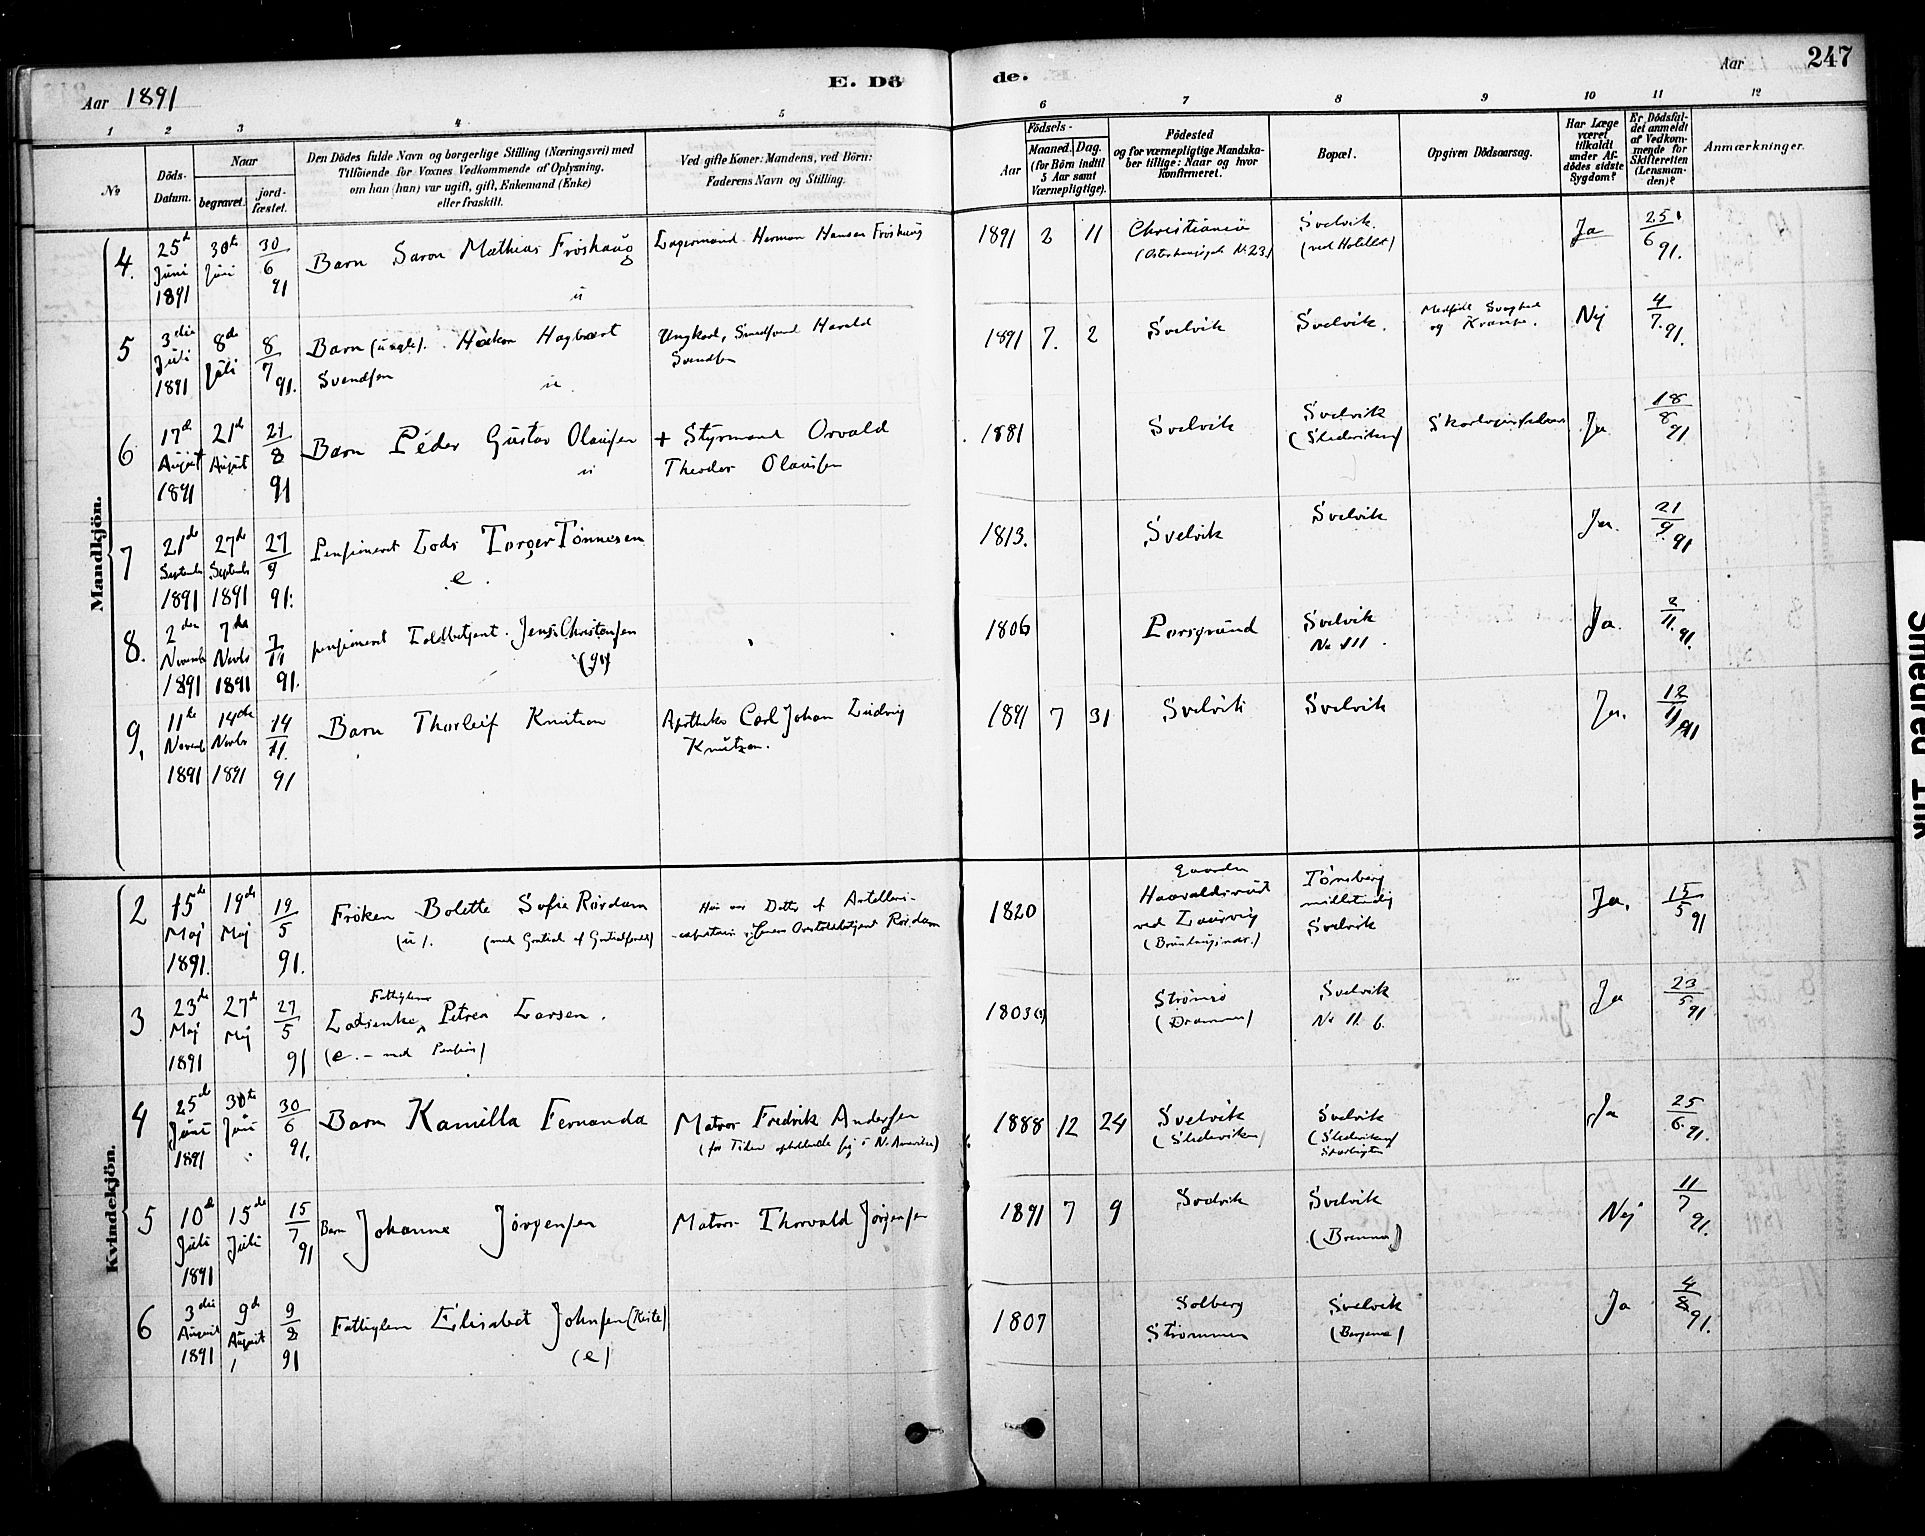 247
E. Dö
de.
Aar 1891
Aar
1 2 3 4 5 6 7 8 9 10 11 12
No
Döds-
Datum.
Naar
begravet.
jord-
fæstet.
Den Dödes fulde Navn og borgerlige Stilling (Næringsvei) med
Tilföiende for Voxnes Vedkommende af Oplysning,
om han (hun) var ugift, gift, Enkemand (Enke)
eller fraskilt.
Ved gifte Koner: Mandens, ved Börn:
Faderens Navn og Stilling.
Födsels-
Aar
Maaned. Dag.
(for Börn indtil
5 Aar samt
Værnepligtige).
Födested
og for værnepligtige Mandska-
ber tillige: Naar og hvor
Konfirmeret.
Bopæl.
Opgiven Dödsaarsag.
Har Læge
været
tilkaldt
under Af-
dödes sidste
Sygdom?
Er Dödsfal-
det anmeldt
af Vedkom-
mende for
Skifteretten
(Lensman-
den)?
Anmærkninger.
Mandkjön.
4. 25de Juni 1891 30te Juni 30/6 91 Barn Saron Mathias Froshaug u Lagermand Herman Hansen Froshaug 1891 2 11 Christiania Svelvik. Ja 25/6 91.
5 3die Juli 1891 8de Juli 8/7 91. Barn Haakon Hagbart Svendsen u. Ungkarl, Harald Svendsen 1891 7. 2 Svelvik Svelvik. Medfødt Svaghed og Krampe. Nej 4/7 91.
6 17de August 1891 21de August 21/8 91 Barn Peder Gustav Olausen u + Styrmand Orvald Theodor Olausen 1881 Svelvik Svelvik Skarlagensfeber Ja 18/8 91
7 21de September 1891 27de September 1891 27/9 91. Pensioneret Lods Torger Tønnesen e. 1813. Svelvik Svelvik Ja. 21/9 91
8. 2den Novemb 1891 7de Novbr 1891 7/11 91. pensioneret Toldbetjent Jens Christensen (g) 1806 Porsgrund Svelvik Ja. 3/11 91.
9. 11te Novemb 1891 14de Novbr 1891 14/11. 91 Barn Thorleif Knutzen Apotheker Carl Johan Ludvig Knutzen. 1891 7 31 Svelvik Svelvik Ja. 12/11 91
Kvindekjön.
2 15de Maj 1891. 19de Maj 19/5 91. Frøken Bolette Sofie Rørdam (u). Datter af Rørdam 1820 Gaarden ved Laurvig Tønsberg Svelvik Ja. 15/5 91
3 23de Maj 1891 27de Maj 27/5 91 Fattiglem Lodsenke Petrea Larsen. (e. - med Pension) 1803 Strømsø (Drammen) Svelvik No 11 6. Ja 23/5 91
4 25de Juni 1891 30te Juni 30/6 91. Barn Kamilla Fernanda Matros Fredrik Andersen (for Tiden opholdende sig i N. Amerika) 1888 12 24 Svelvik Svelvik Ja 25/6 91.
5 10de Juli 1891 15de Juli 15/7 91 Barn Johanne Jørgensen Matros Thorvald Jørgensen 1891 7 9 Svelvik Svelvik (Brenna) Nej 11/7 91.
6 3die August 1891 9de August 9/8 91 Fattiglem Elisabet Johnsen (e) 1807 Solberg Strømmen Svelvik Ja 4/8 91.
Smedred Ink